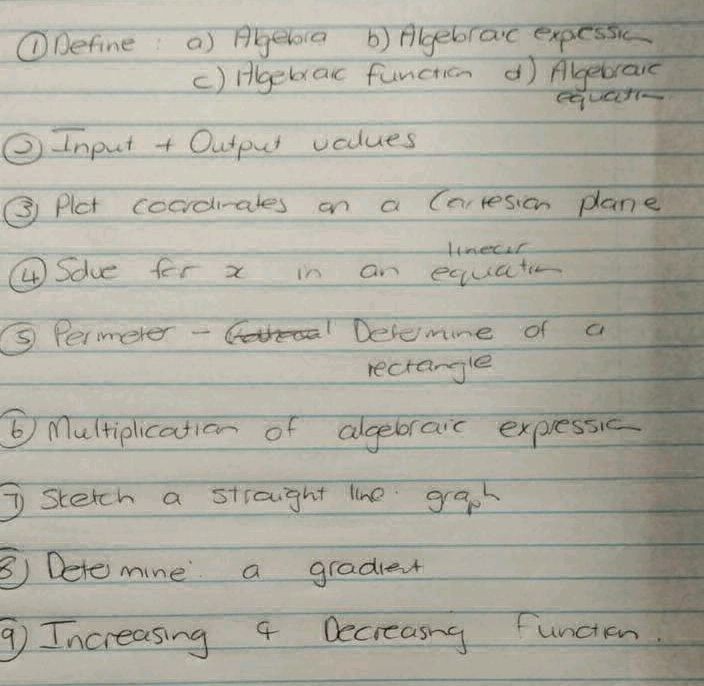 ① Define : a) Algebra b) Algebraic expression
c) Algebraic function d) Algebraic
equation
② Input + Output values
③ Plot coordinates on a Cartesian plane
linear
④ Solve for x in an equation
⑤ Perimeter - Determine of a
rectangle
⑥ Multiplication of algebraic expression
⑦ Sketch a straight line graph
⑧ Determine a gradient
⑨ Increasing & Decreasing function.